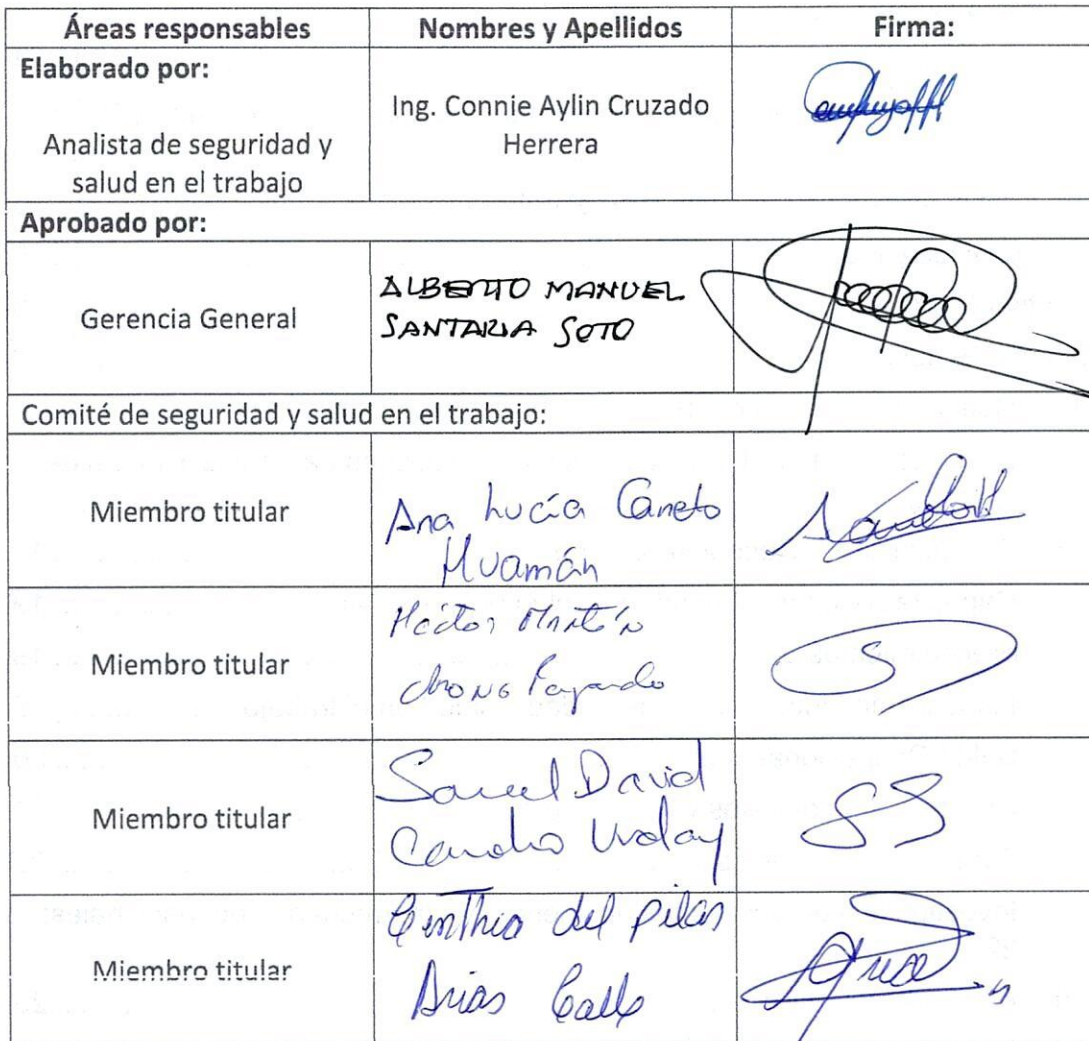 Áreas responsables Nombres y Apellidos Firma:
Elaborado por:
Analista de seguridad y
salud en el trabajo
Ing. Connie Aylin Cruzado
Herrera
Aprobado por:
Gerencia General
ALBERTO MANUEL
SANTARIA SOTO
Comité de seguridad y salud en el trabajo:
Miembro titular
Ana Lucía Caneto
Huamán
Miembro titular
Héctor Martín
Miembro titular
Samuel David
Miembro titular
Cinthia del Pilar
Arias Calle